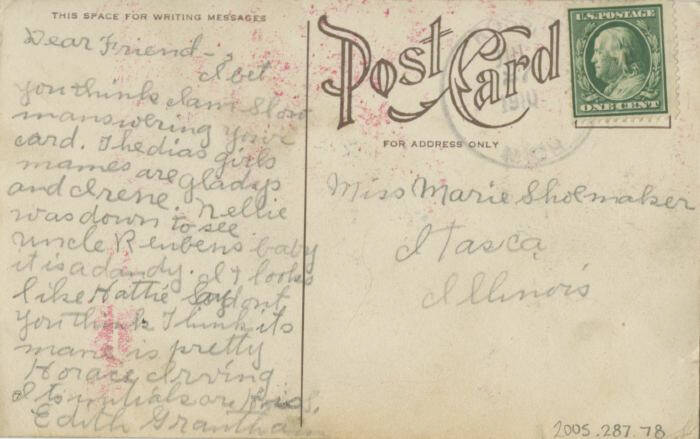 THIS SPACE FOR WRITING MESSAGES
Dear Friend -,
I bet
you think I am slow
in answering your
card. The dias girls
names are gladys
and Irene. Nellie
was down to see
uncle Reubens baby
it is a dandy. It looks
like Hattie Say dont
you think I think its
name is pretty
Horace Irving
Its initials are
Edith Grantham
Post Card
FOR ADDRESS ONLY
U.S. POSTAGE
ONE CENT
1910
MICH
Miss Marie Shoemaker
Itasca
Illinois
2005.287.78